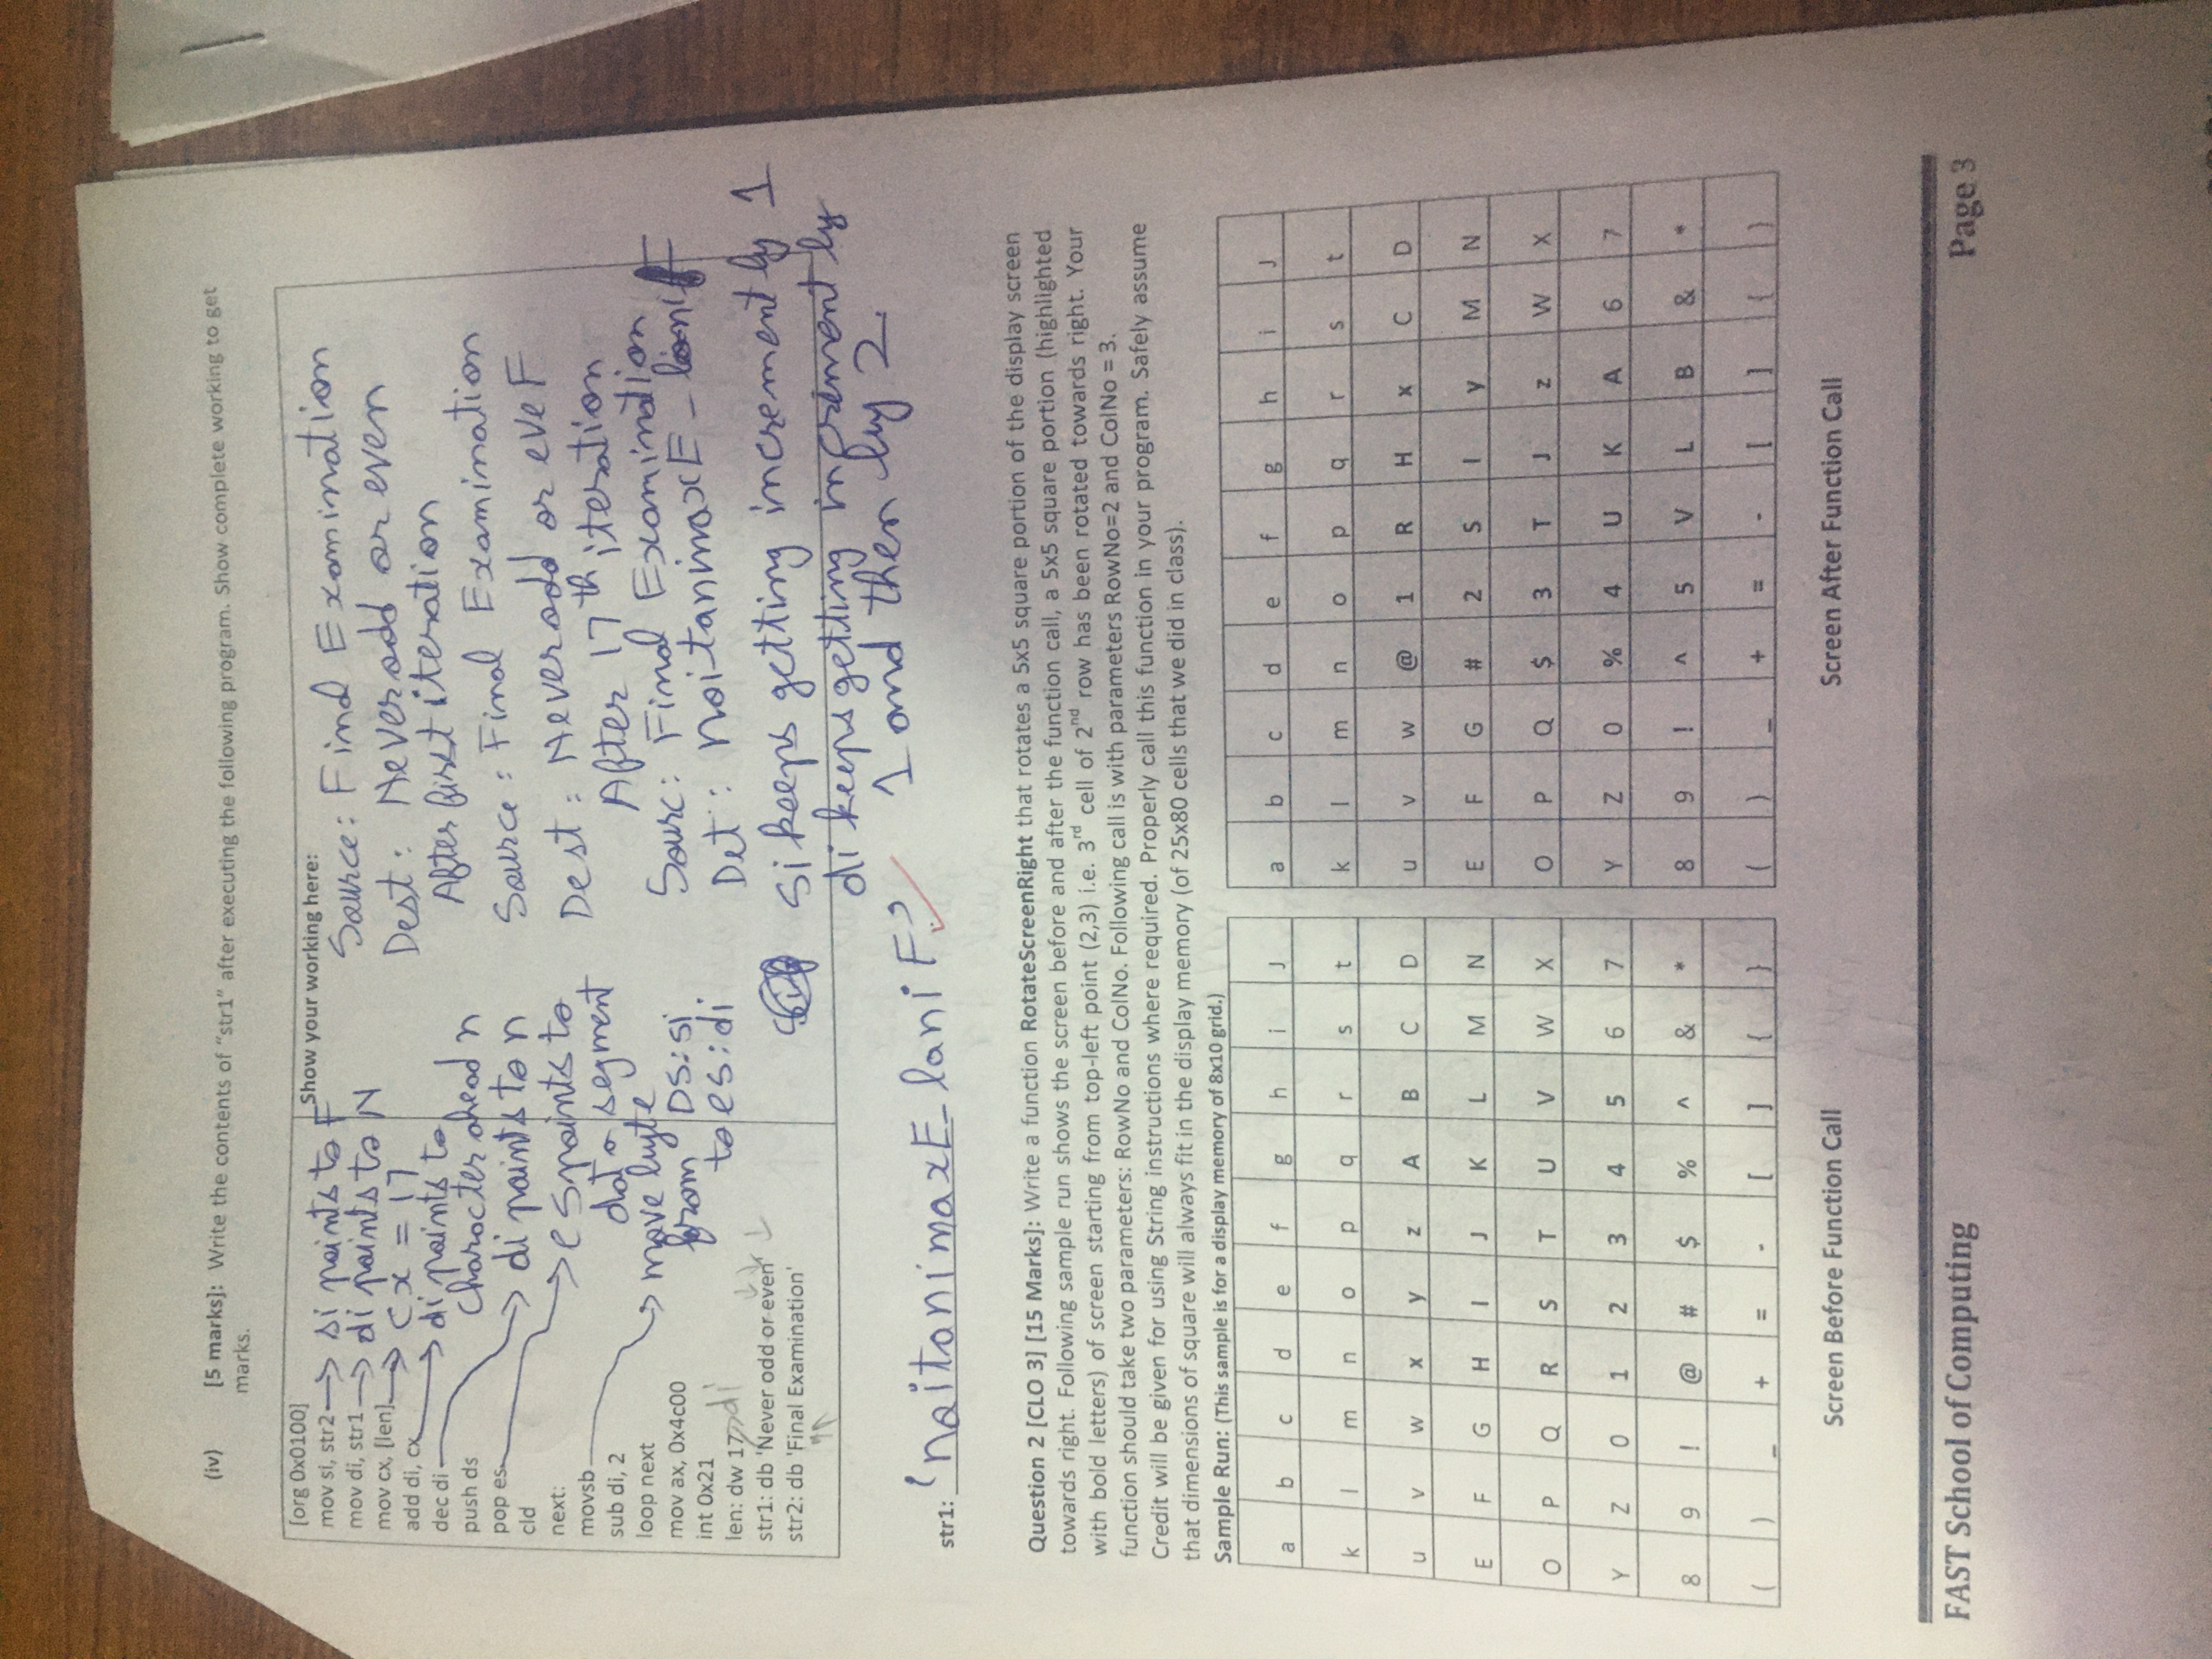 (iv) [5 marks]: Write the contents of “str1” after executing the following program. Show complete working to get
marks.
[org 0x0100]
mov si, str2 → si points to F
mov di, str1 → di points to N
mov cx, [len] → cx = 17
add di, cx → di points to
character ahead n
dec di → di points to n
push ds
pop es → es points to
data segment
cld
next:
movsb → move byte
from DS:si
to es:di
sub di, 2
loop next
mov ax, 0x4c00
int 0x21
len: dw 17 di
str1: db 'Never odd or even'
str2: db 'Final Examination'
Show your working here:
Source: Final Examination
Dest: Never odd or even
After first iteration
Source: Final Examination
Dest: Never odd or eveF
After 17th iteration
Sourc: Final Examination
Det: noitanimaxE - laniF
si keeps getting increment by 1
di keeps getting increment by
1 and then by 2.
str1: 'noitanimaxE_laniF'
Question 2 [CLO 3] [15 Marks]: Write a function RotateScreenRight that rotates a 5x5 square portion of the display screen
towards right. Following sample run shows the screen before and after the function call, a 5x5 square portion (highlighted
with bold letters) of screen starting from top-left point (2,3) i.e. 3rd cell of 2nd row has been rotated towards right. Your
function should take two parameters: RowNo and ColNo. Following call is with parameters RowNo=2 and ColNo = 3.
Credit will be given for using String instructions where required. Properly call this function in your program. Safely assume
that dimensions of square will always fit in the display memory (of 25x80 cells that we did in class).
Sample Run: (This sample is for a display memory of 8x10 grid.)
a b c d e f g h i J
k l m n o p q r s t
u v w x y z A B C D
E F G H I J K L M N
O P Q R S T U V W X
Y Z 0 1 2 3 4 5 6 7
8 9 ! @ # $ % ^ & *
( ) _ + = - [ ] { }
Screen Before Function Call
a b c d e f g h i J
k l m n o p q r s t
u v w @ 1 R H x C D
E F G # 2 S I y M N
O P Q $ 3 T J z W X
Y Z 0 % 4 U K A 6 7
8 9 ! ^ 5 V L B & *
( ) _ + = - [ ] { }
Screen After Function Call
FAST School of Computing
Page 3